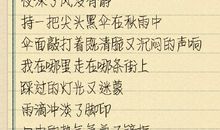 夜深了风没有静
持一把尖头黑伞在秋雨中
伞面敲打着既清脆又沉闷的声响
我在哪里走在哪条街上
踩过的灯光又迷蒙
雨滴冲淡了脚印